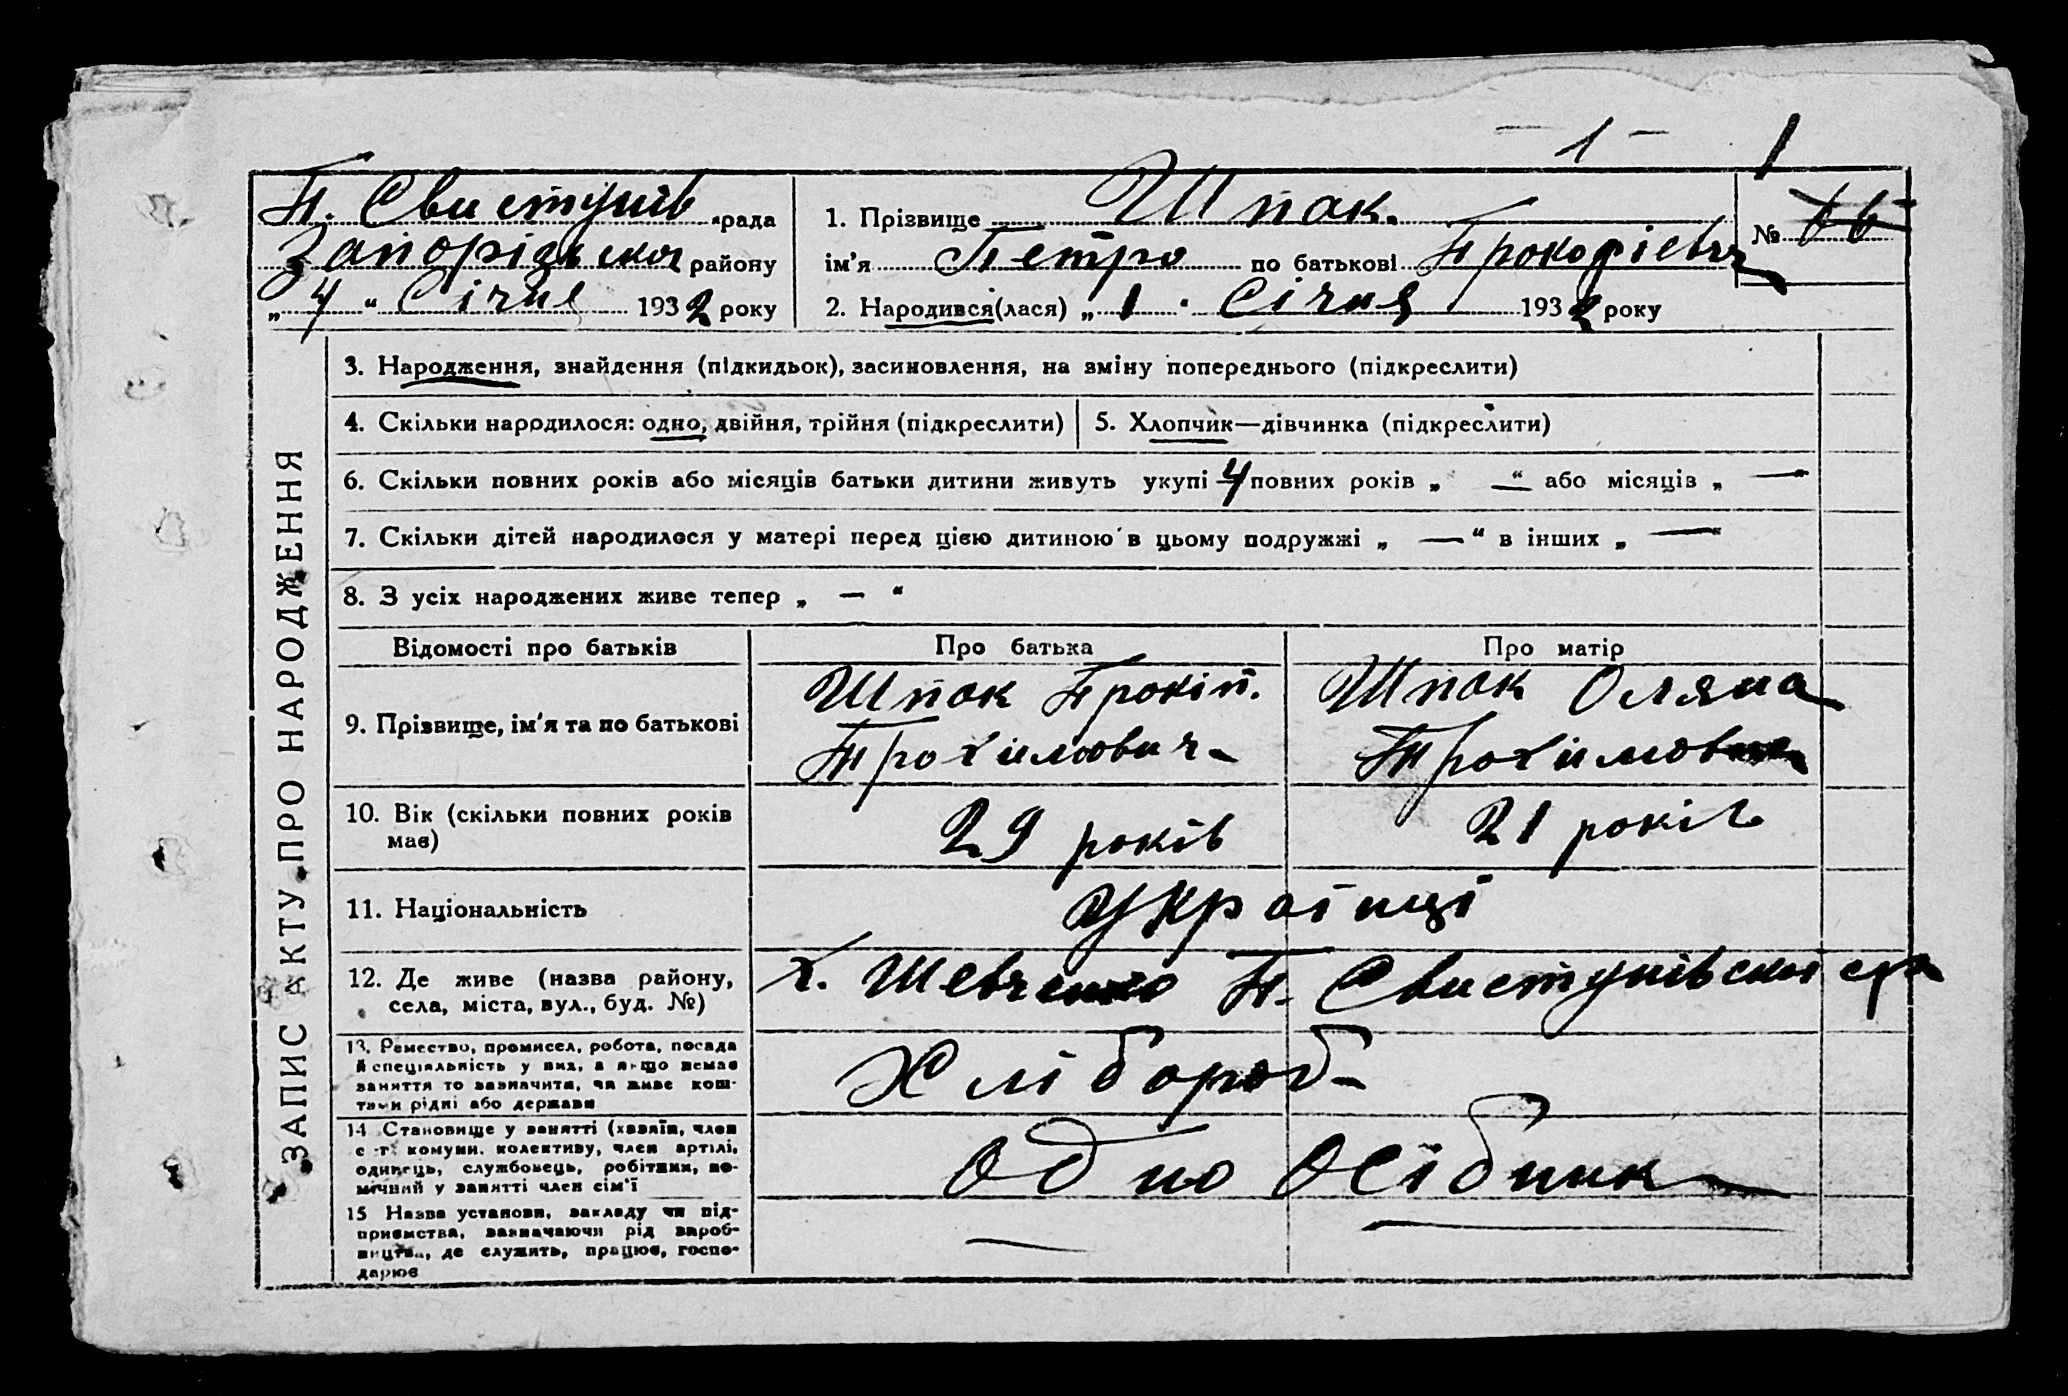 — 1 — 1
П. Свистунів рада
Запорізькоя району
„ 4 “ Січня 1932 року
1. Прізвище Шпак.
ім'я Петро по батькові Прокофіевич
№
2. Народився(лася) „ 1 “ Січня 1932 року
ЗАПИС АКТУ ПРО НАРОДЖЕННЯ
3. Народження, знайдення (підкидьок), засиновлення, на зміну попереднього (підкреслити)
4. Скільки народилося: одно, двійня, трійня (підкреслити) 5. Хлопчик—дівчинка (підкреслити)
6. Скільки повних років або місяців батьки дитини живуть укупі 4 повних років „ — “ або місяців „ — “
7. Скільки дітей народилося у матері перед цією дитиною в цьому подружжі „ — “ в інших „ — “
8. З усіх народжених живе тепер „ — “
Відомості про батьків Про батька Про матір
9. Прізвище, ім'я та по батькові
Шпак Прокіп.
Трохимович
Шпак Оляна
10. Вік (скільки повних років
має)
29 років
21 років
11. Національність
Українці
12. Де живе (назва району,
села, міста, вул., буд. №)
х. Шевченко П. Свистунівськоі с/р
13. Ремество, промисел, робота, посада
й спеціяльність у них, а якщо немає
заняття то зазначити, чи живе кош-
тами рідні або держави
Хлібороб
14 Становище у занятті (хазяїн, член
с.-г. комуни, колективу, член артілі,
одинець, службовець, робітник, по-
мічний у занятті член сім'ї
Одноосібник
15 Назва установи, закладу чи під-
приємства, зазначаючи рід вироб-
ництва, де служить, працює, госпо-
дарює
—